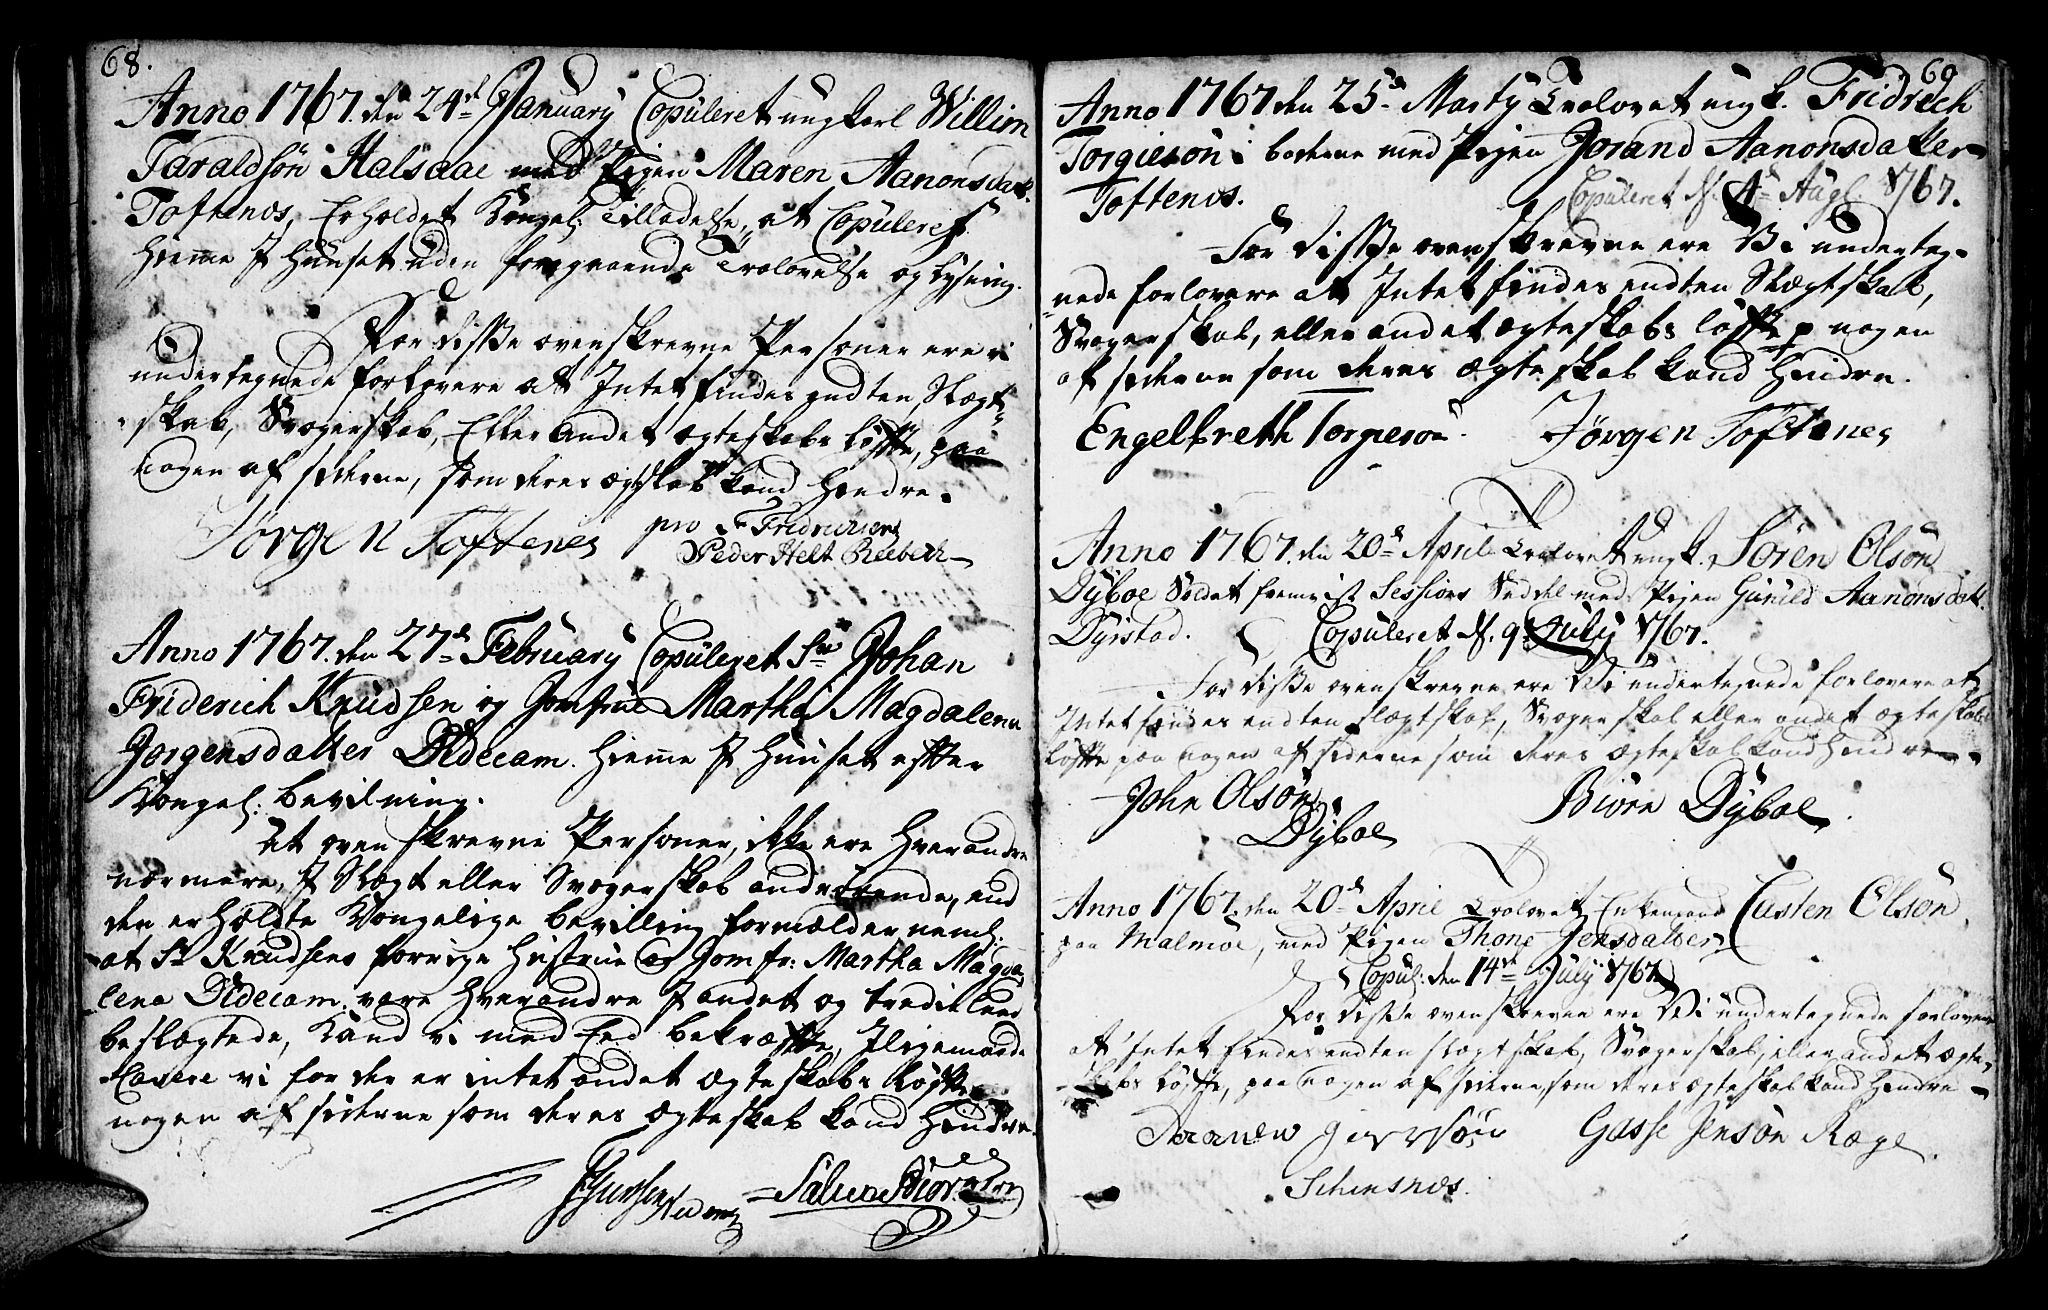 68.
Anno 1767. den 24de January Copuleret ungkarl Willim
Taraldsøn Halsaae med Pigen Maren Aanonsdatt.
Toftenes, Erholdet Kongel: Tilladelse, at Copuleres
hieme J Huuset uden foregaaende Trolovelse og lysning.
For disse ovenskrevne Personer ere vi
undertegnede forlovere at Intet findes endten Slægt-
skab, Svogerskab, Eller andet ægteskabs løfte, paa
nogen af siderne, som deres ægteskab kand hindre.
Jørgen Toftenes pro Fridrichsen
Peder Helt
Anno 1767. den 27de February Copuleret Sr Johan
Friderich Knudsen og Jomfrue Martha Magdalena
Jørgensdatter Dedecam. hieme J Huuset efter
Kongel: bevilning.
At oven skrevne Personer, ikke ere hverandre
nærmere, J Slægt eller Svogerskab andrørende, end
den erholdte Kongelige bevilling formælder neml:
at Sr Knudsens forrige Hustrue og Jomfr: Martha Magda
lena Dedecam. være hverandre J andet og tredie leed
beslægtede, Kand vi med Eed bekræfte, Jligemaade
Cavere vi for der er intet andet ægteskabs løfte
nogen af siderne som deres ægteskab kand hindre.
69
Anno 1767. den 25de Marty Trolovet ungk. Fridrech
Torgiesøn i boderne med Pigen Jorand Aanonsdatter
Toftenes. Copuleret d. 4de Aug 1767.
For disse ovenskrevne ere Vi underteg-
nede forlovere at Intet findes endten Slægtskab,
Svogerskab, eller andet ægteskabs løfte p nogen
af siderne som deres ægteskab kand hindre.
Engelbreth Torgiesøn. Jørgen Toftenes
Anno 1767. den 20de April Trolovet ungk. Søren Olsøn
Dyboe Soldat fremvist Sessions Seddel med Pigen Gunild Aanonsdatt.
Dyrstad. Copuleret d. 9de July 1767.
For disse ovenskrevne ere Vi undertegnede forlovere at
Intet findes endten slægtskab, Svogerskab eller andet ægteskabs
løfte paa nogen af siderne som deres ægteskab kand hindre.
John Olsøn Biørn Dyboe
Dyboe
Anno 1767. den 20de April Trolovet Enkemand Casten Olsøn
paa Malmøe, med Pigen Thone Jensdatter
Copul: den 14de July 1767
For disse ovenskrevne ere Vi undertegnede forlovere
at Intet findes endten slægtskab, Svogerskab, eller andet ægte-
skabs løfte, paa nogen af siderne, som deres ægteskab kand hindre
Gasse Jensøn Ræge.